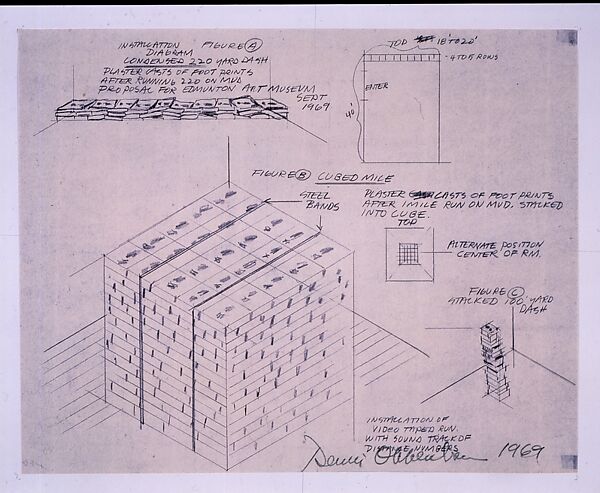 INSTALLATION FIGURE A
DIAGRAM
CONDENSED 220 YARD DASH
PLASTER CASTS OF FOOT PRINTS
AFTER RUNNING 220 ON MUD
PROPOSAL FOR EDMUNTON ART MUSEUM
SEPT
1969
TOP 18' TO 20'
4 TO 5 ROWS
ENTER
40'
FIGURE B CUBED MILE
STEEL
BANDS
PLASTER CASTS OF FOOT PRINTS
AFTER 1 MILE RUN ON MUD. STACKED
INTO CUBE.
TOP
ALTERNATE POSITION
CENTER OF RM.
FIGURE C
STACKED 100 YARD
DASH
INSTALLATION OF
VIDEO TAPED RUN.
WITH SOUND TRACK OF
DISTANCE NUMBERS
Dennis Oppenheim 1969